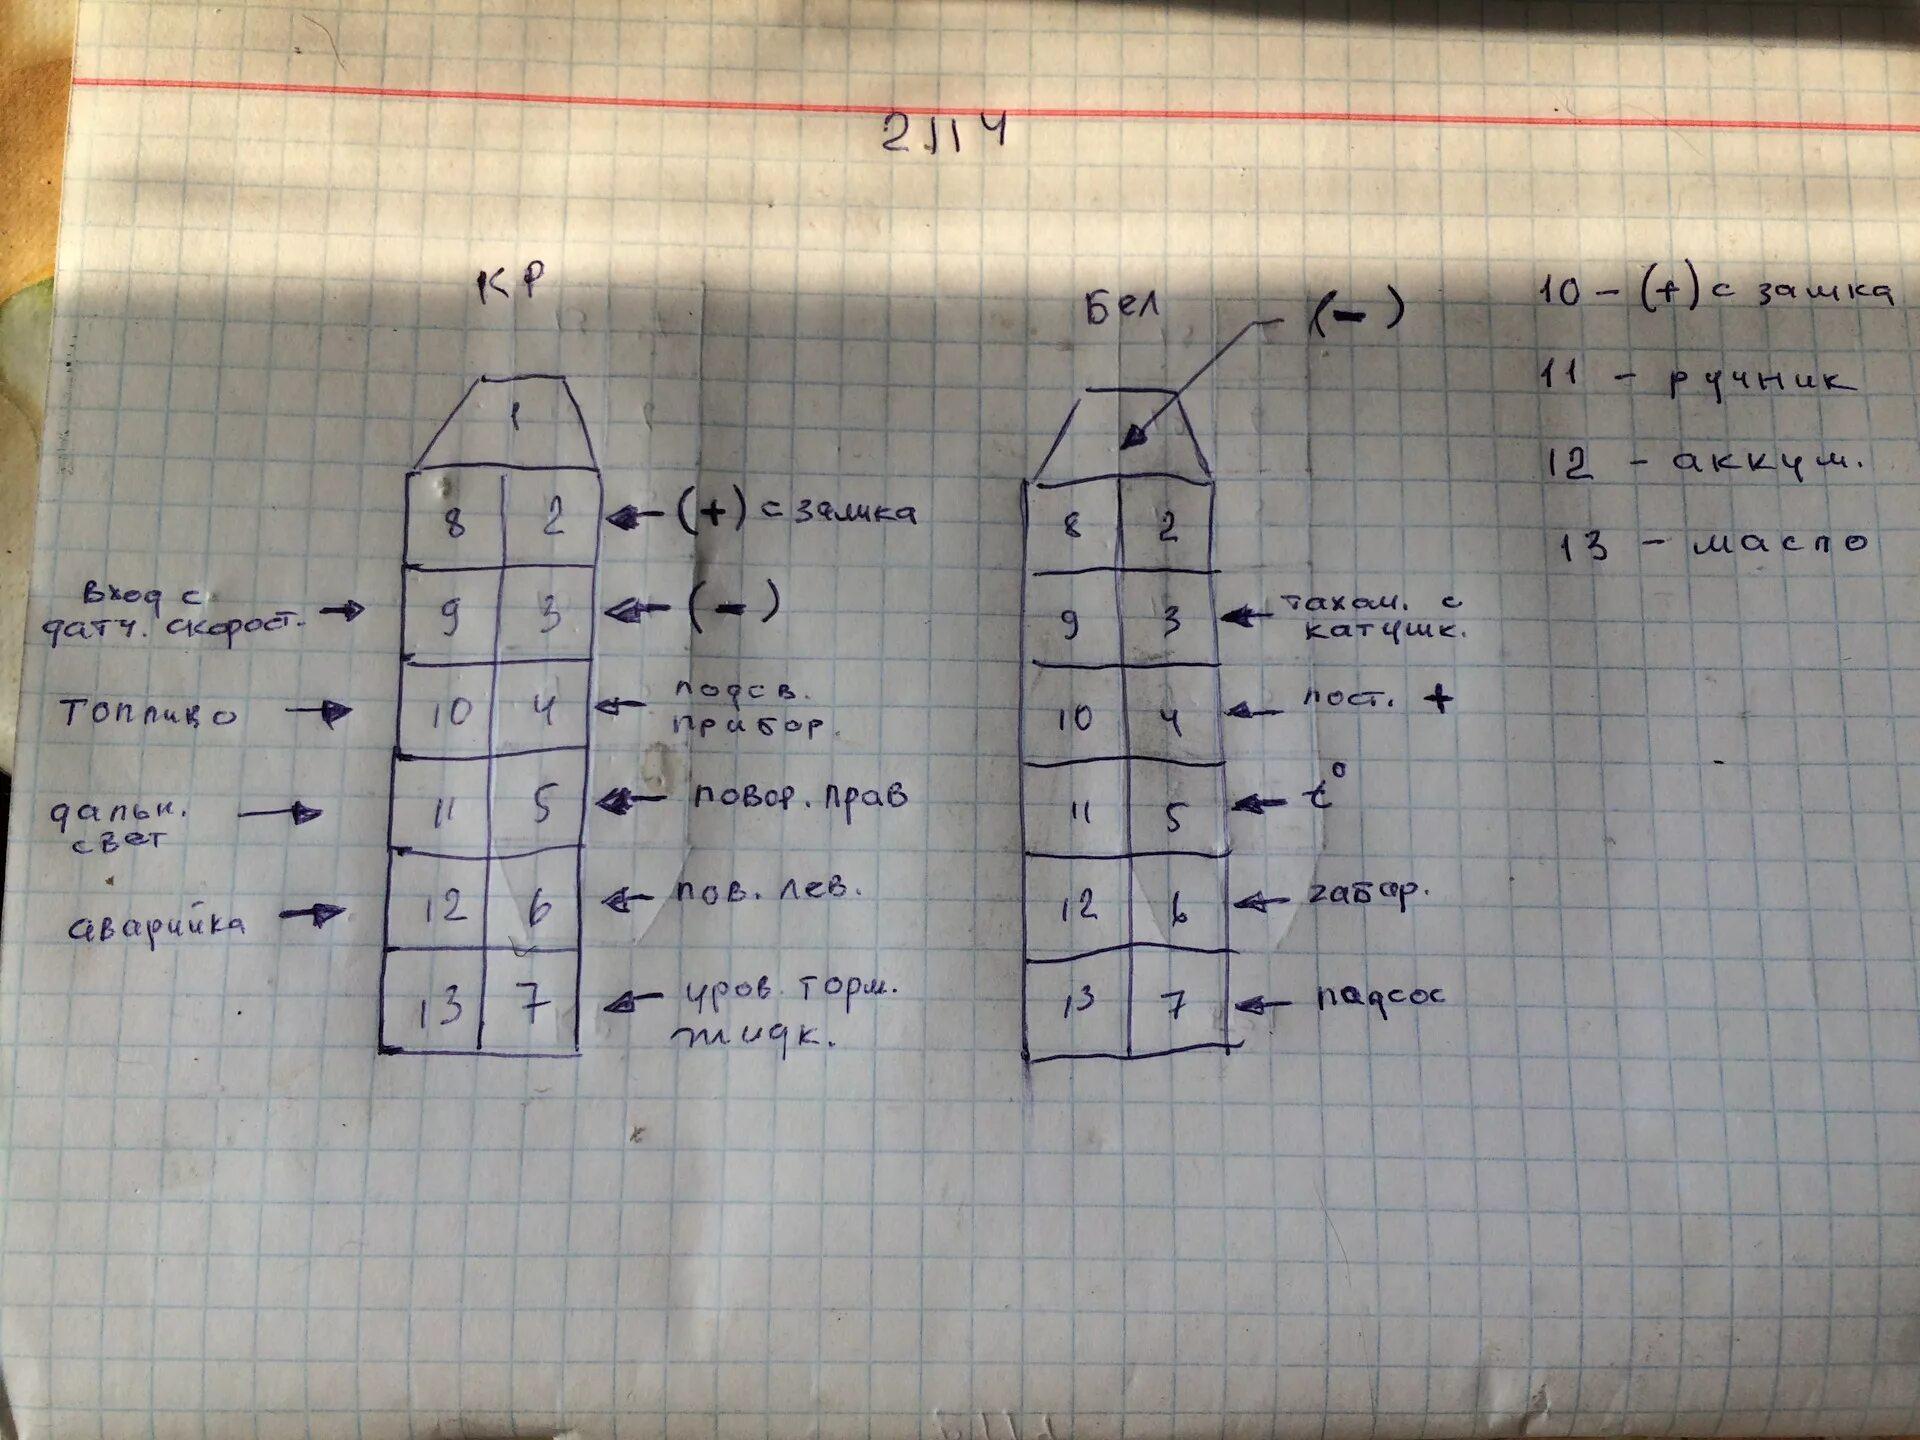 2114
КР
1
8 2 (+) с замка
вход с
датч. скорост.
9 3 (-)
топливо
10 4 подсв.
прибор.
дальн.
свет
11 5 повор. прав
аварийка
12 6 пов. лев.
13 7 уров. торм.
жидк.
Бел
(-)
8 2
9 3 тахом. с
катушк.
10 4 пост. +
11 5 t°
12 6 габар.
13 7 падсос
10 - (+) с замка
11 - ручник
12 - аккум.
13 - масло